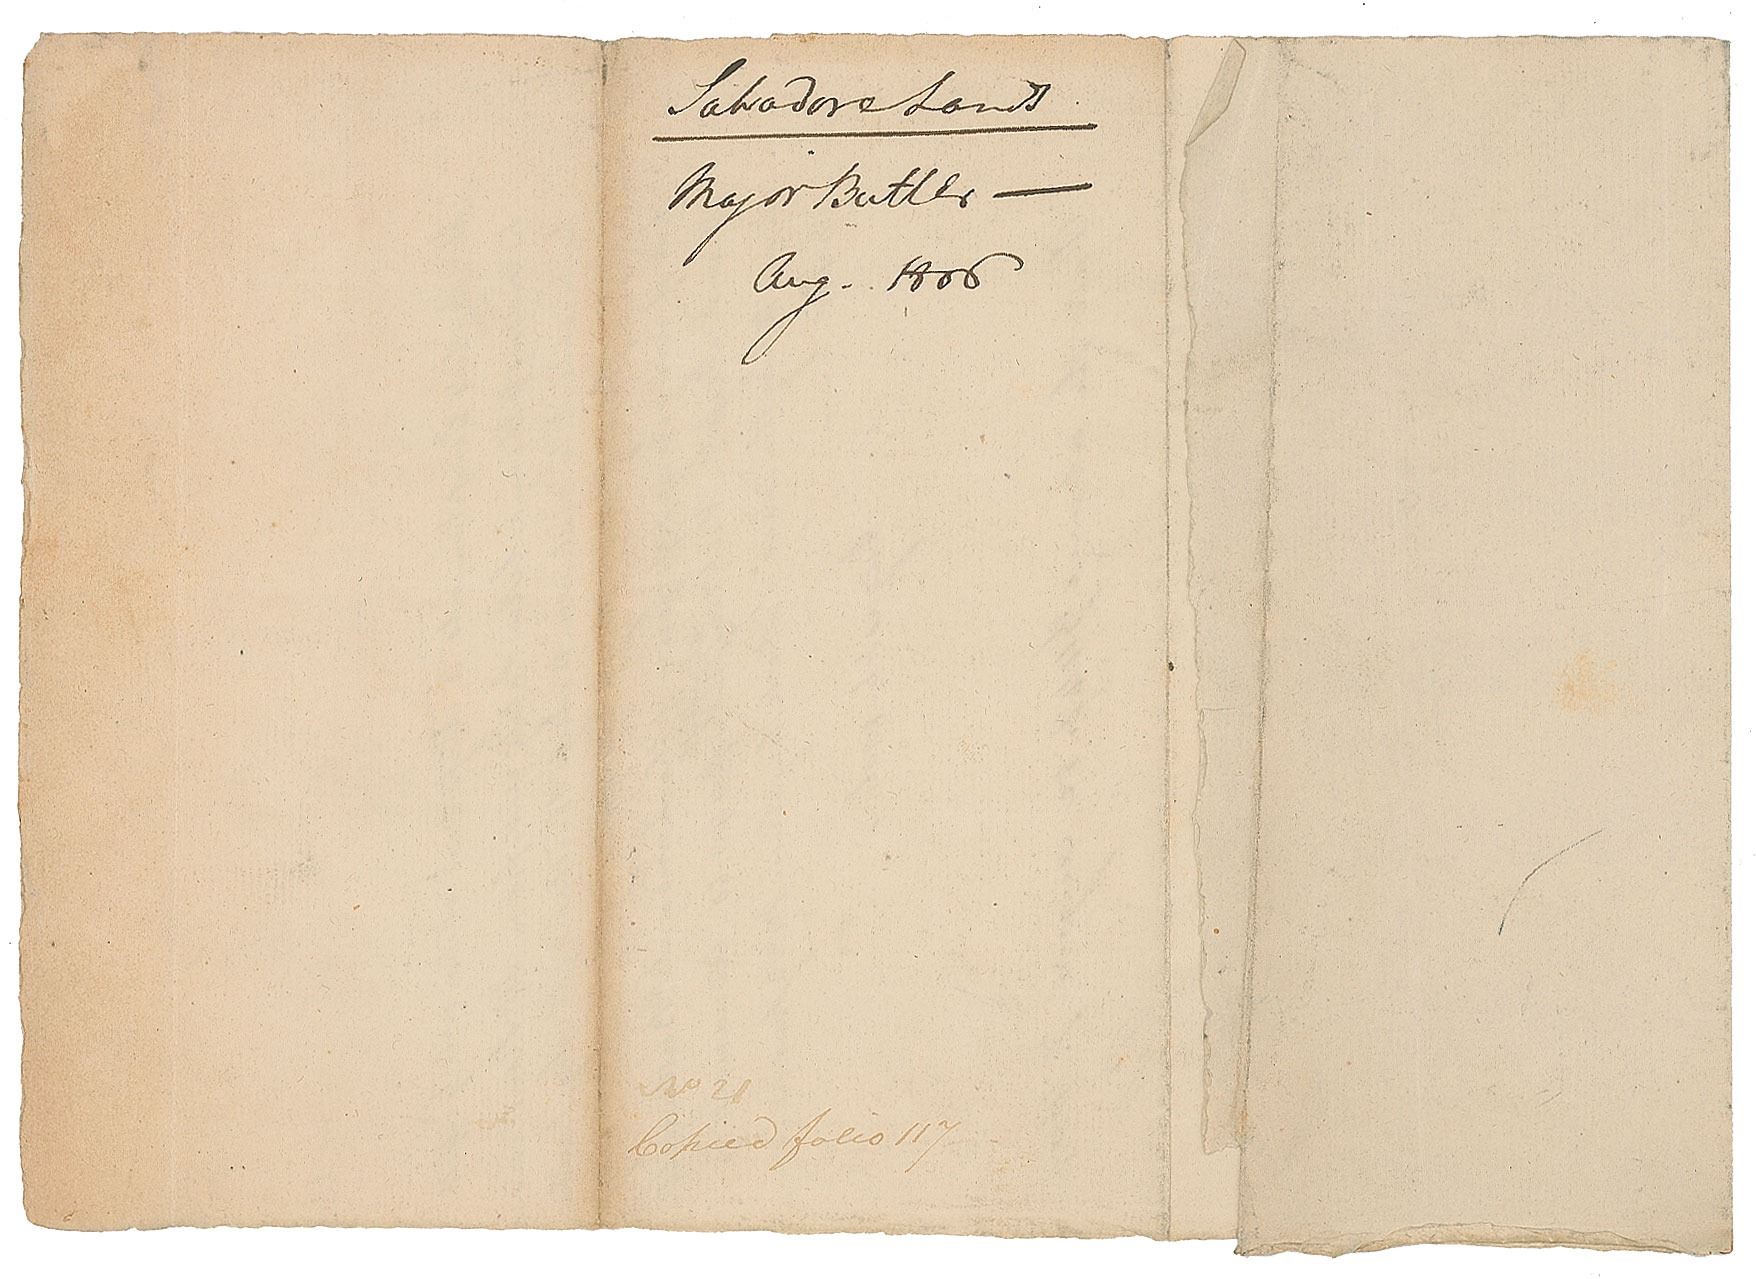 Salvadore Lands
Major Butler —
Aug. 1806
No 21
Copied folio 117